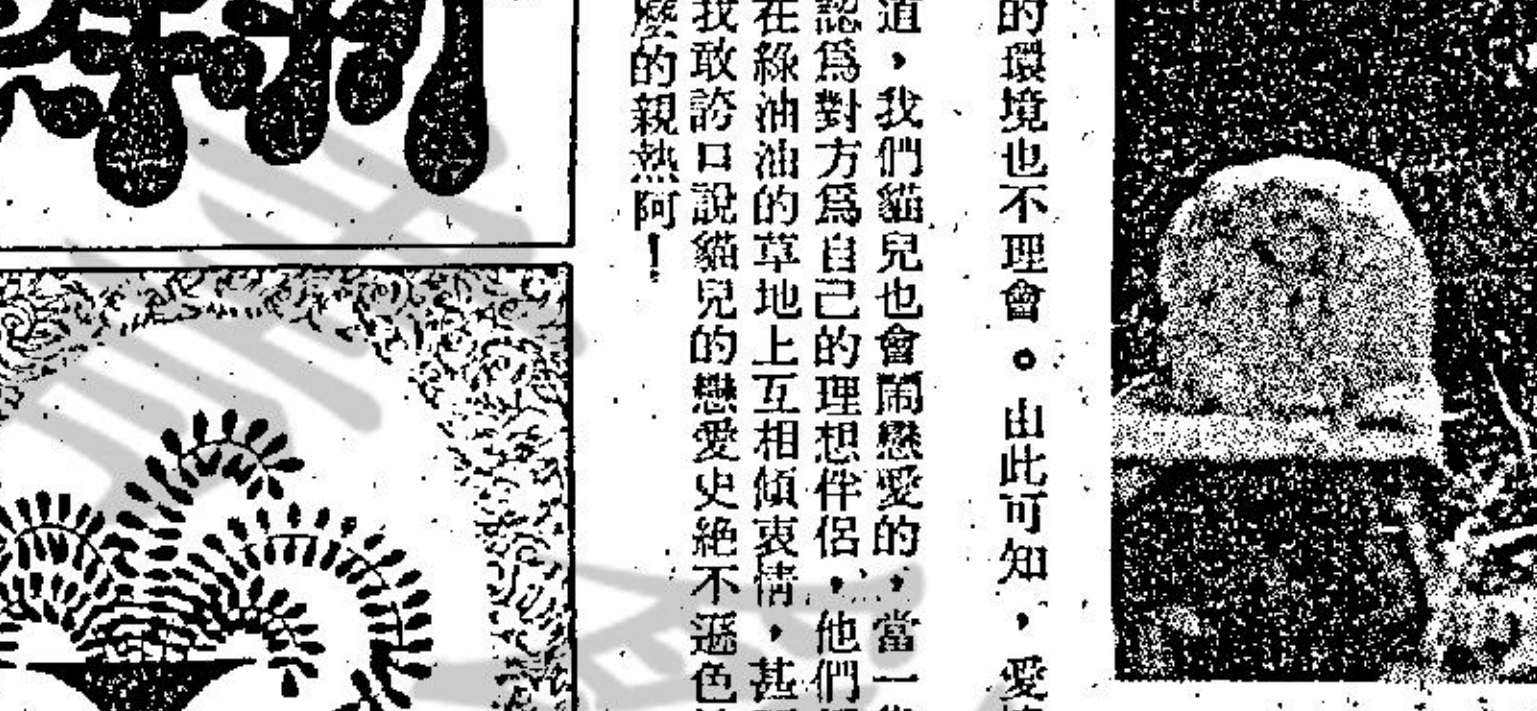 的環境也不理會。由此可知，愛
道，我們貓兒也會鬧戀愛的，當一
認爲對方爲自己的理想伴侶，他們
在綠油油的草地上互相傾衷情，甚
我敢誇口說貓兒的戀愛史絕不遜色
麼的親熱阿！